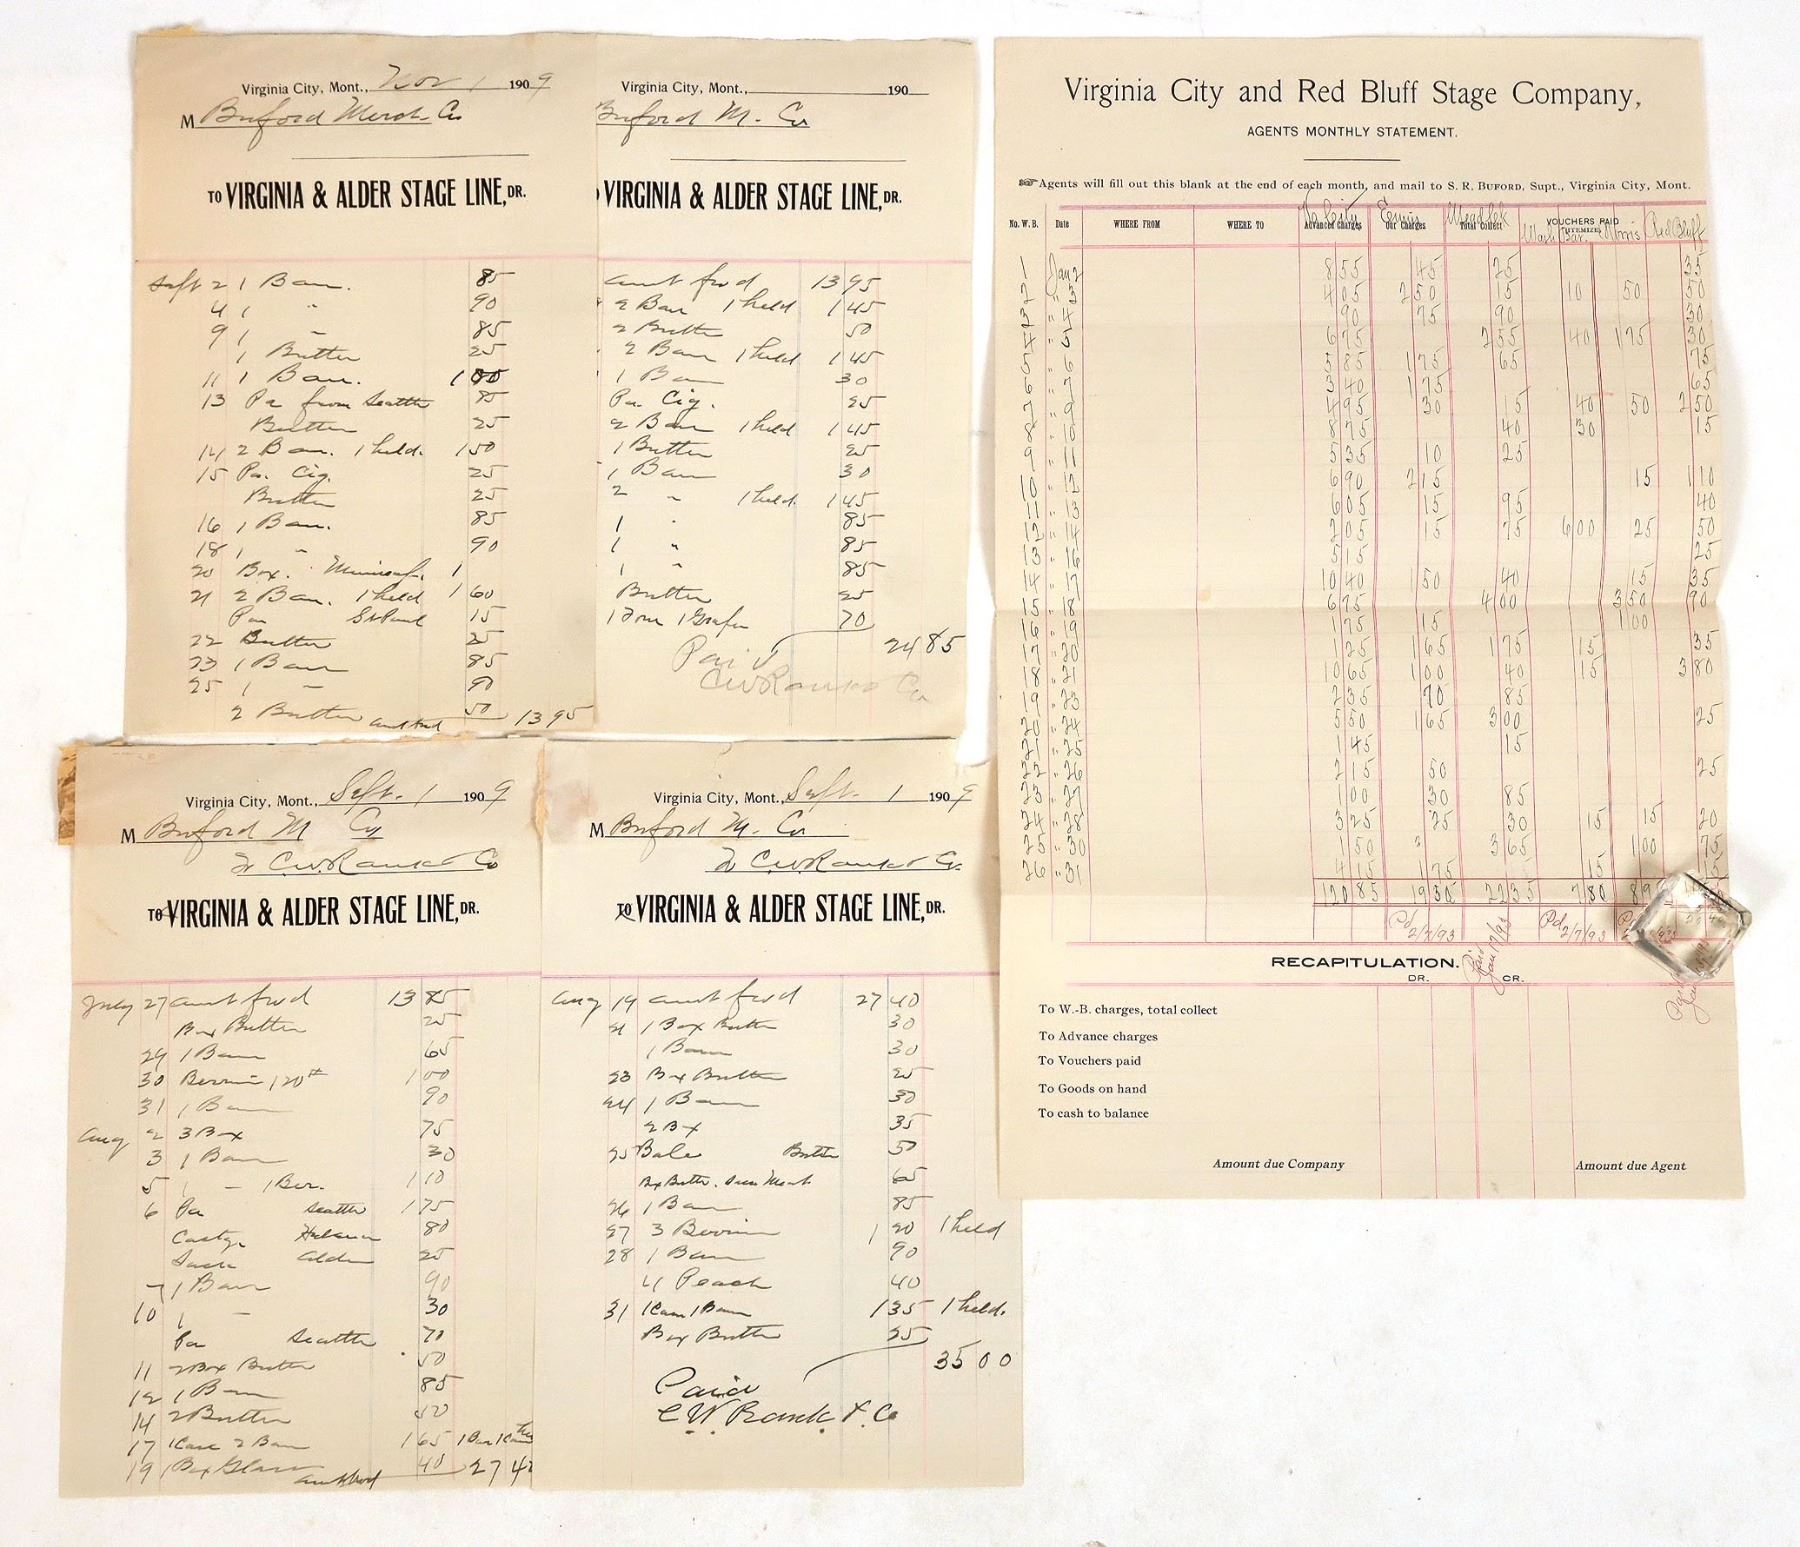 Virginia City, Mont., Nov 1 1909
M Buford Merch Co
TO VIRGINIA & ALDER STAGE LINE, DR.
Sept 2 1 Bam. 85
4 1 " 90
9 1 " 85
1 Butter 25
11 1 Bam. 1 00
13 Pa from Seattle 85
Butter 25
14 2 Bam. 1 held. 1 50
15 Pa. Cig. 25
Butter 25
16 1 Bam. 85
18 1 " 90
20 Box. 1
21 2 Bam. 1 held 1 60
Pa St Paul 15
22 Butter 25
23 1 Bam 85
25 1 " 90
2 Butter 50 13 95
Virginia City, Mont., 190
Buford M. Co
VIRGINIA & ALDER STAGE LINE, DR.
amt frwd 13 95
2 Bam 1 held 1 45
2 Butter 50
2 Bam 1 held 1 45
1 Bam 30
Pa. Cig. 25
2 Bam 1 held 1 45
1 Butter 25
1 Bam 30
2 " 1 held. 1 45
1 " 85
1 " 85
1 " 85
Butter 25
70
24 85
Paid
C W Rank & Co
Virginia City, Mont., Sept. 1 1909
M Buford M Co
To C. W. Rank & Co
TO VIRGINIA & ALDER STAGE LINE, DR.
July 27 amt frwd 13 85
Box Butter 25
29 1 Bam 65
30 120# 1 00
31 1 Bam 90
Aug 2 3 Box 75
3 1 Bam 30
5 1 " 1 Ber. 1 10
6 Pa Seattle 1 75
Castge Helena 80
Sack Alder 25
7 1 Bam 90
10 1 " 30
Pa Seattle 70
11 2 Box Butter 50
12 1 Bam 85
14 2 Butter 50
17 1 Case 2 Bam 1 65
19 1 Box Glass 40 27 4
Virginia City, Mont., Sept. 1 1909
M Buford M. Co
To C. W. Rank & Co.
TO VIRGINIA & ALDER STAGE LINE, DR.
Aug 19 amt frwd 27 40
21 1 Box Butter 30
1 Bam 30
23 Box Butter 25
24 1 Bam 30
2 Bx 35
25 Bale Butter 50
65
26 1 Bam 85
27 3 1 20 1 held
28 1 Bam 90
4 Peach 40
31 1 Cam 1 Bam 1 35 1 held.
Box Butter 25
35 00
Paid
C. W. Rank & Co
Virginia City and Red Bluff Stage Company,
AGENTS MONTHLY STATEMENT.
☞ Agents will fill out this blank at the end of each month, and mail to S. R. BUFORD, Supt., Virginia City, Mont.
No. W. B. Date WHERE FROM WHERE TO Advance Charges Our Charges Total Collect VOUCHERS PAID (ITEMIZE)
Va City Ennis Mead Lk Wash Bar. Norris Red Bluff
1 Jan 2 8 55 45 25 35
2 " 3 4 05 2 50 15 10 50 50
3 " 4 90 75 90 30
4 " 5 6 75 2 55 40 1 75 30
5 " 6 5 85 1 75 65 75
6 " 7 3 40 1 75 65
7 " 9 4 95 30 15 40 50 2 50
8 " 10 8 75 40 30 15
9 " 11 5 35 10 25
10 " 12 6 90 2 15 15 1 10
11 " 13 6 05 15 95 40
12 " 14 2 05 15 75 6 00 25 50
13 " 16 5 15 25
14 " 17 10 40 1 50 40 15 35
15 " 18 6 75 4 00 3 50 90
16 " 19 1 75 15 1 00
17 " 20 1 25 1 65 1 75 15 35
18 " 21 10 65 1 00 40 15 3 80
19 " 23 2 35 70 85
20 " 24 5 50 1 65 3 00 25
21 " 25 1 45 15
22 " 26 2 15 50 25
23 " 27 1 00 30 85
24 " 28 3 25 25 30 15 15 20
25 " 30 1 50 3 65 1 00 75
26 " 31 4 15 1 75 15
120 85 19 30 22 35 7 80 8 9
Pd 2/7/93 Paid Jan 17/93 Pd 2/7/93
RECAPITULATION.
DR. CR.
To W.-B. charges, total collect
To Advance charges
To Vouchers paid
To Goods on hand
To cash to balance
Amount due Company Amount due Agent